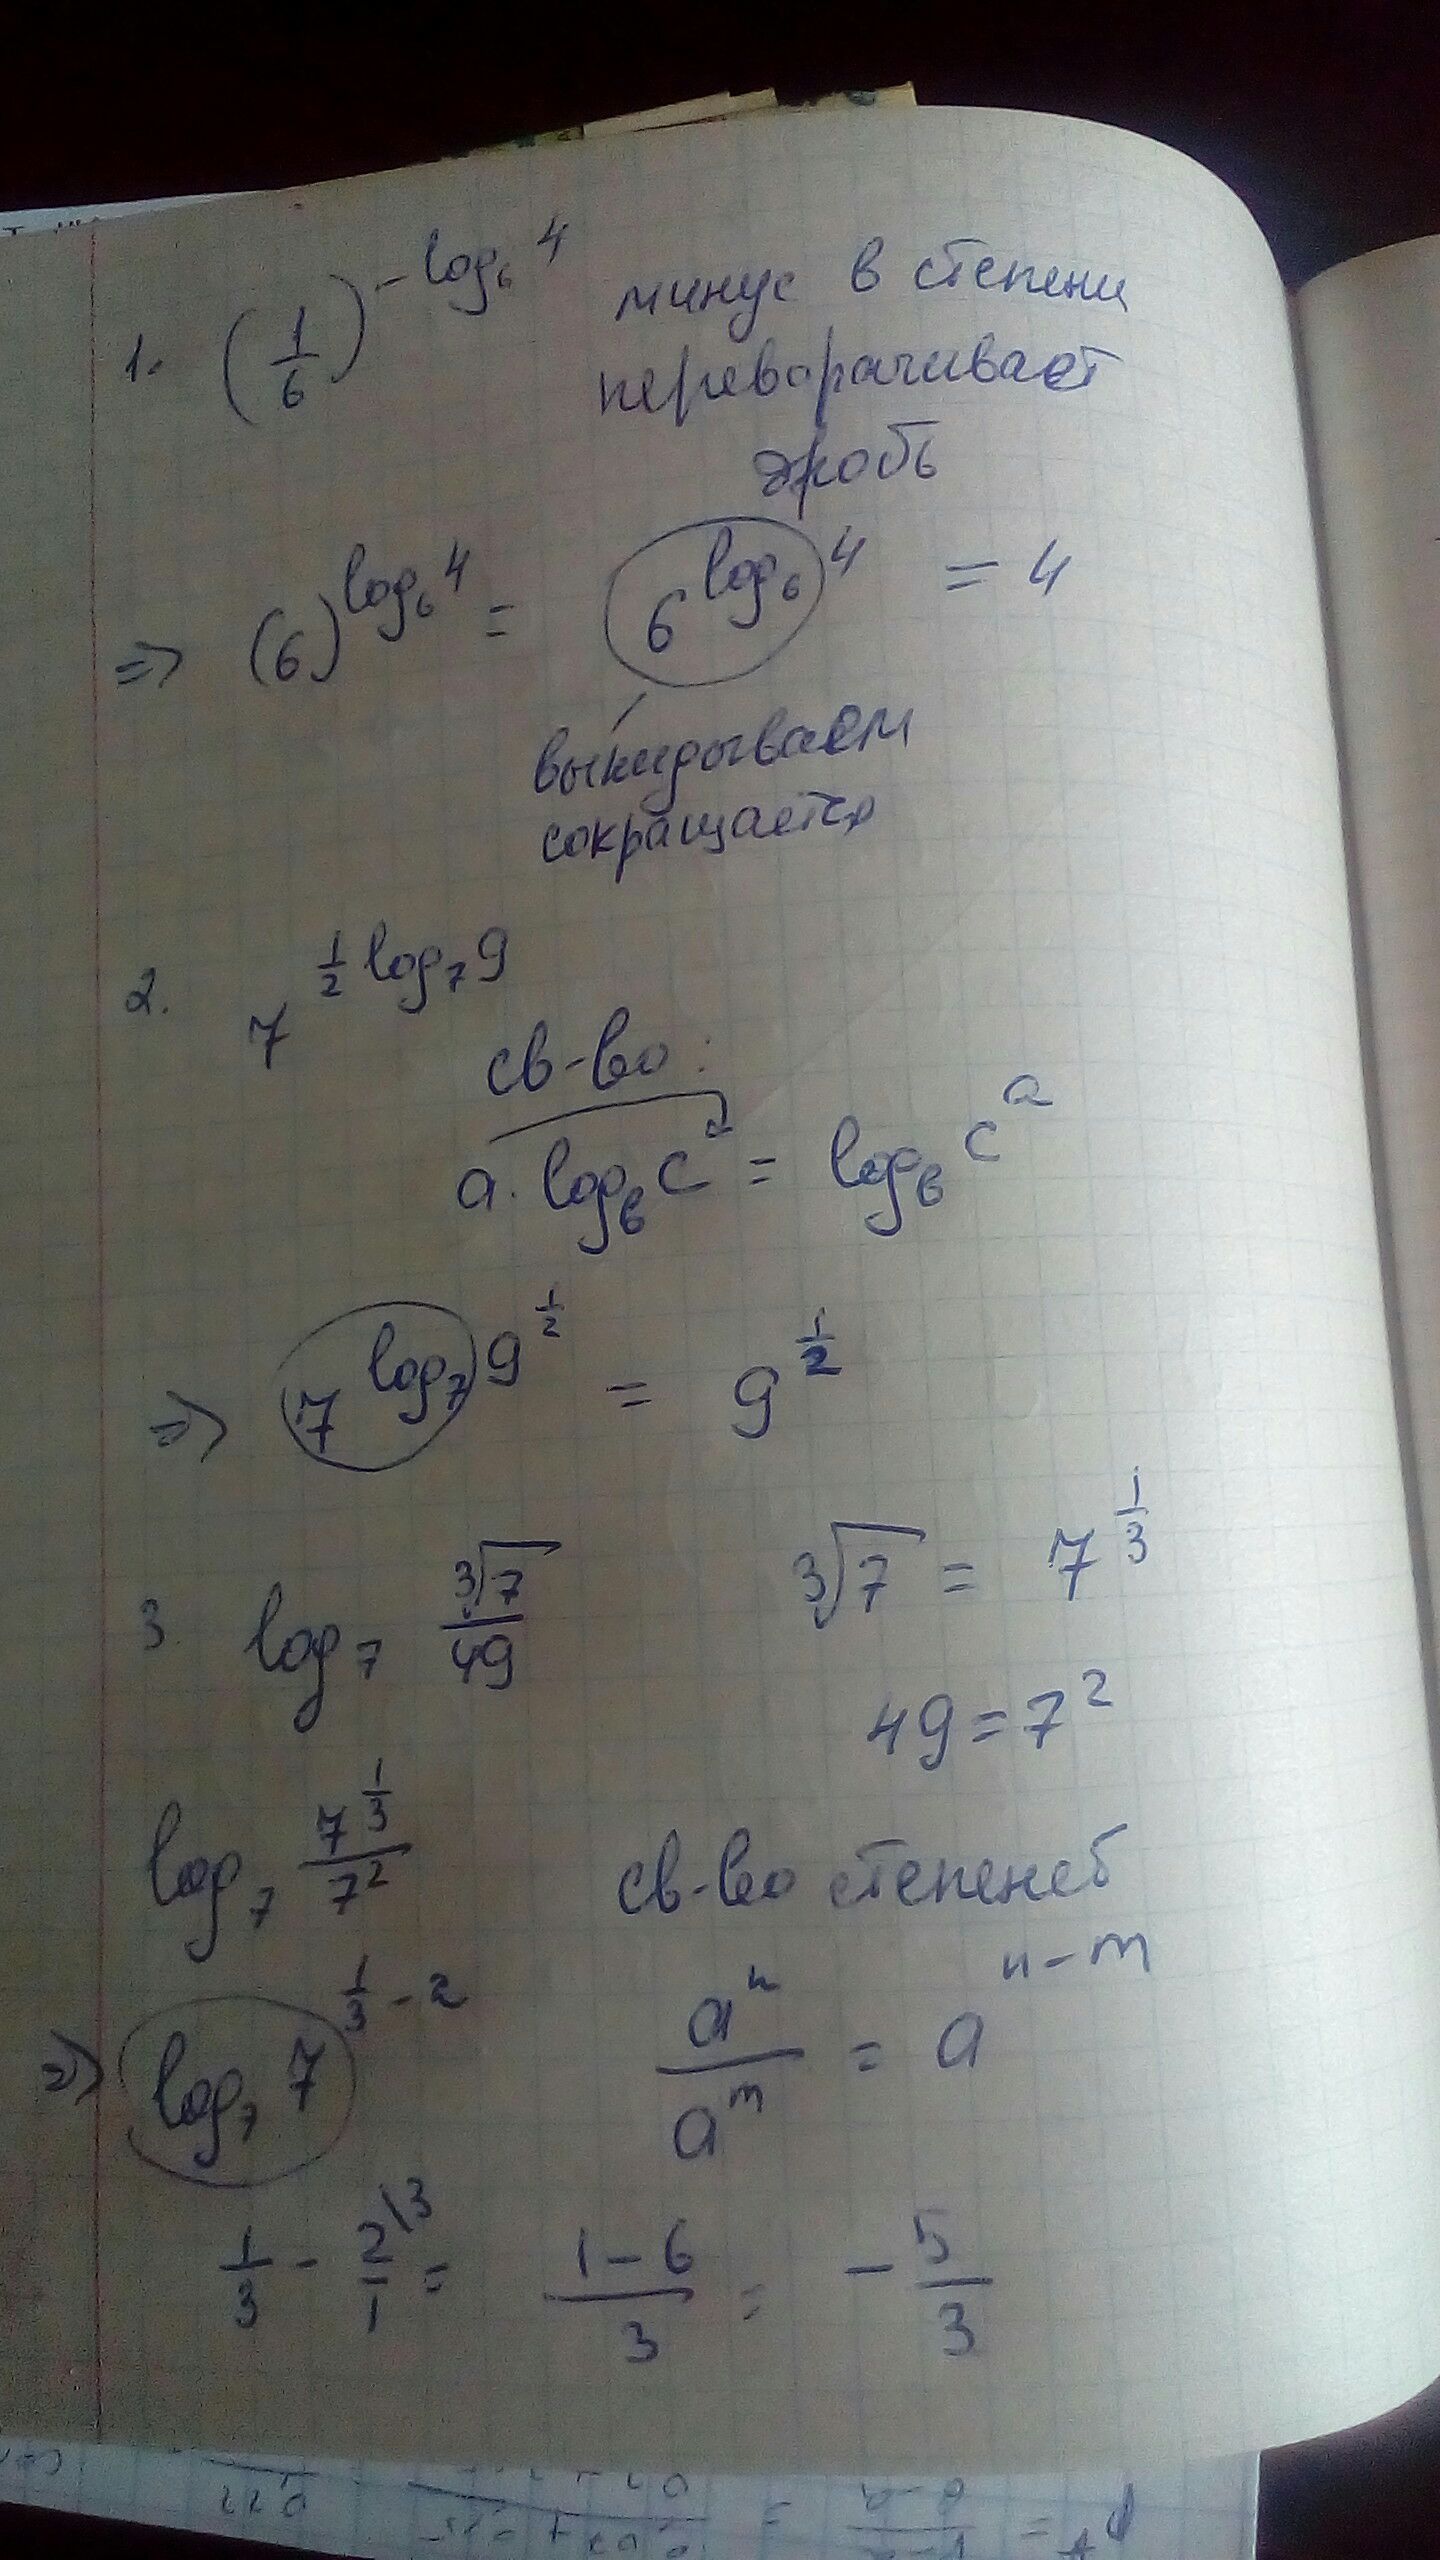 1. (1/6)^(-log₆ 4) минус в степени
переворачивает
дробь
=> (6)^(log₆ 4) = 6^(log₆ 4) = 4
выкидываем
сокращается
2. 7^(1/2 log₇ 9)
св-во:
a · log_b c = log_b c^a
=> 7^(log₇ 9^(1/2)) = 9^(1/2)
3. log₇ ∛7/49 ∛7 = 7^(1/3)
49 = 7²
log₇ 7^(1/3)/7² св-во степеней
=> log₇ 7^(1/3 - 2) a^n/a^m = a^(n-m)
1/3 - 2\3/1 = (1-6)/3 = -5/3